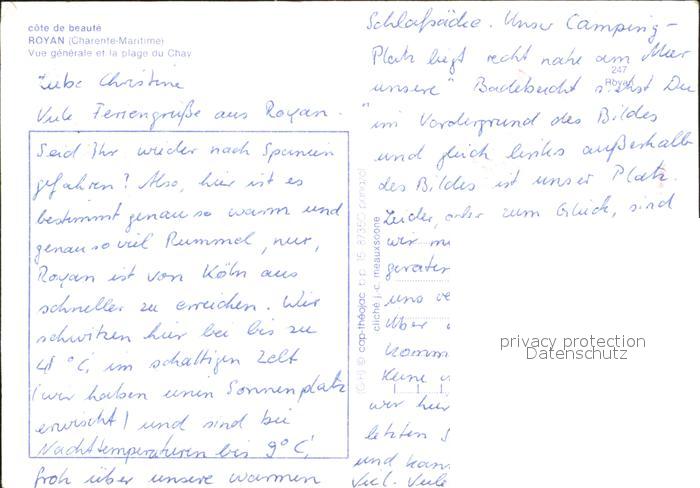 côte de beauté
ROYAN (Charente-Maritime)
Vue générale et la plage du Chay
Liebe Christine
Viele Feriengrüße aus Royan.
Seid Ihr wieder nach Spanien
gefahren? Also, hier ist es
bestimmt genau so warm und
genau so viel Rummel, nur,
Royan ist von Köln aus
schneller zu erreichen. Wir
schwitzen hier bei bis zu
41 °C im schattigen Zelt
(wir haben einen Sonnenplatz
erwischt) und sind bei
Nachttemperaturen bis 9°C,
froh über unsere warmen
Schlafsäcke. Unser Camping-
Platz liegt recht nahe am Meer
"unsere" Badebucht siehst Du
im Vordergrund des Bildes
und gleich links außerhalb
des Bildes ist unser Platz.
Leider, oder zum Glück, sind
wir
geraten
uns
über
komm
keine
wir hier
letzten
und kann
viel. Viele
247
Royan
(G H) © cap-théojac b.p. 15 87350 panazol
cliché j.-c. meauxsoone
privacy protection
Datenschutz